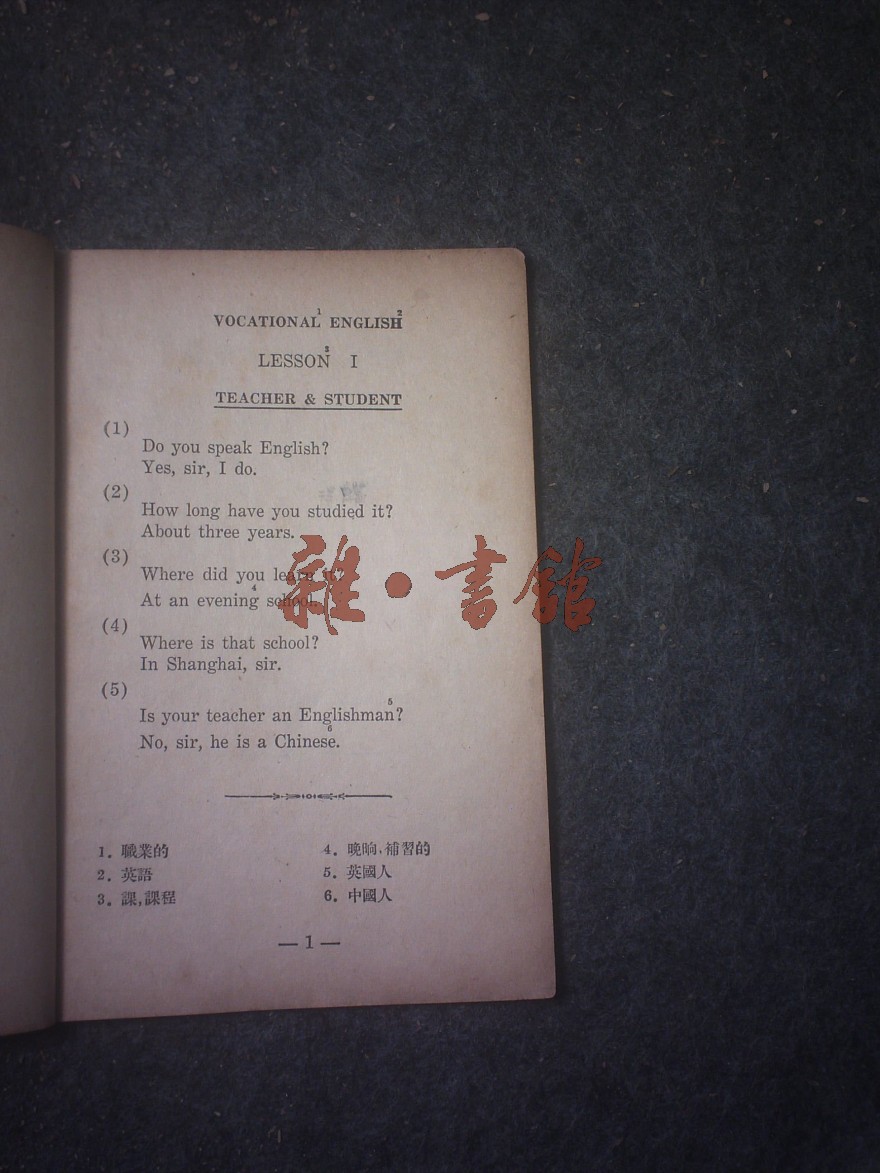 VOCATIONAL¹ ENGLISH²
LESSON³ I
TEACHER & STUDENT
(1)
Do you speak English?
Yes, sir, I do.
(2)
How long have you studied it?
About three years.
(3)
Where did you learn it?
At an evening⁴ school.
(4)
Where is that school?
In Shanghai, sir.
(5)
Is your teacher an Englishman⁵?
No, sir, he is a Chinese⁶.
1. 職業的
2. 英語
3. 課,課程
4. 晚晌,補習的
5. 英國人
6. 中國人
— 1 —
雜·書館